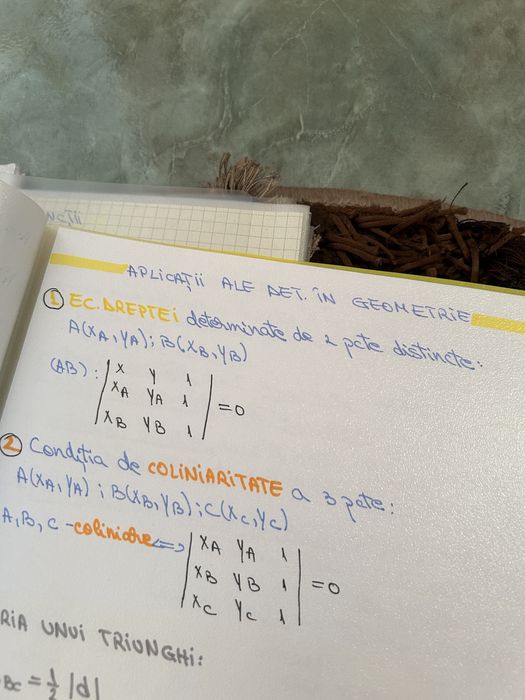 NCȚII
APLICAȚII ALE DET. ÎN GEOMETRIE
1 EC. DREPTEI determinate de 2 pcte distincte:
A(XA, YA); B(XB, YB)
(AB): | X Y 1 |
| XA YA 1 | = 0
| XB YB 1 |
2 Condiția de COLINIARITATE a 3 pcte:
A(XA, YA); B(XB, YB); C(XC, YC)
A, B, C - coliniare <=> | XA YA 1 |
| XB YB 1 | = 0
| XC YC 1 |
RIA UNUI TRIUNGHI:
BC = 1/2 |d|